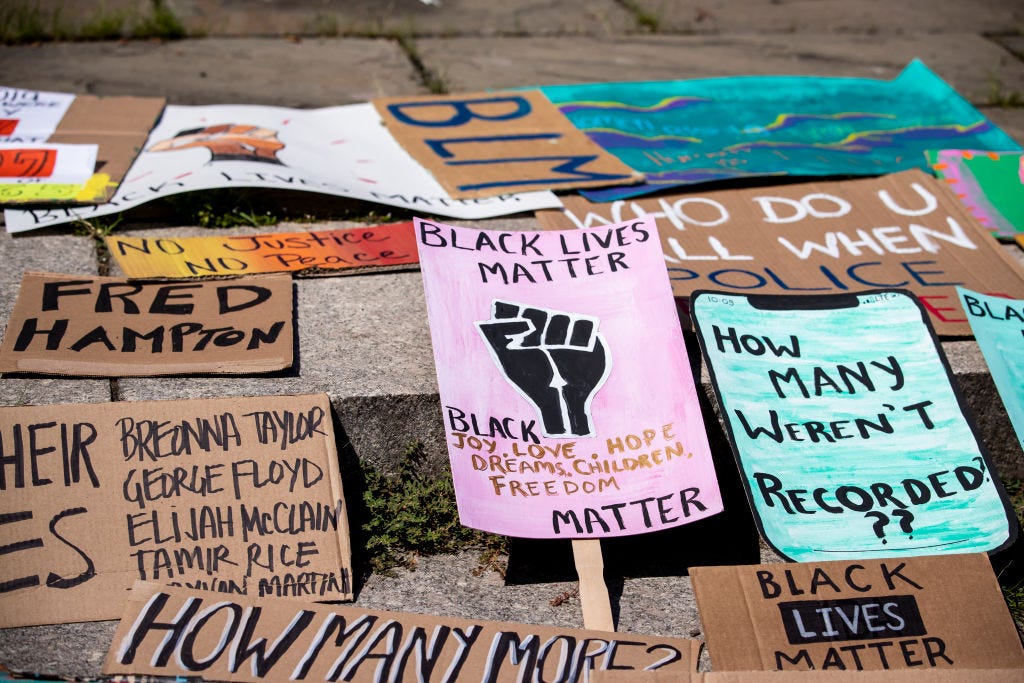 BLACK LIVES MATTER
BLM
NO JUSTICE
NO PEACE
WHO DO U
WHEN
POLICE
FRED
HAMPTON
BLACK LIVES
MATTER
BLACK
JOY. LOVE. HOPE
DREAMS. CHILDREN.
FREEDOM
MATTER
10:09
HOW
MANY
WEREN'T
RECORDED?
??
BREONNA TAYLOR
GEORGE FLOYD
ELIJAH McCLAIN
TAMIR RICE
MARTIN
HOW MANY MORE?
BLACK
LIVES
MATTER